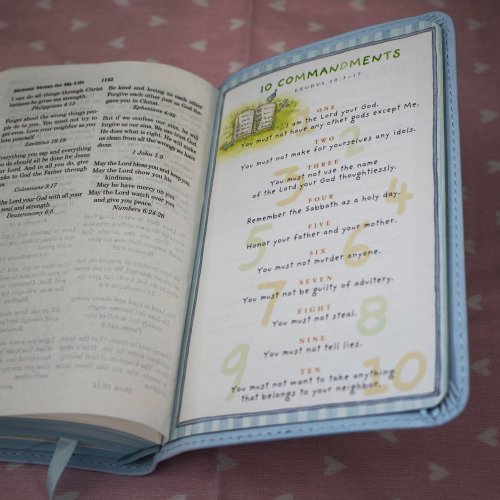 Memory Verses for My Life 1142
I can do all things through Christ
because he gives me strength.
Philippians 4:13
Forget about the wrong things
ple do to you. You must not try
et even. Love your neighbor as you
yourself.
Leviticus 19:18
Everything you say and everything
you do should all be done for Jesus
ur Lord. And in all you do, give
nks to God the Father through
Colossians 3:17
the Lord your God with all your
soul and strength.
Deuteronomy 6:5
Be kind and loving to each other
Forgive each other just as God for-
gave you in Christ.
Ephesians 4:32
But if we confess our sins, he will
forgive us our sins. We can trust God.
He does what is right. He will make
us clean from all the wrongs we have
done.
1 John 1:9
May the Lord bless you and keep you.
May the Lord show you his
kindness.
May he have mercy on you.
May the Lord watch over you
and give you peace.
Numbers 6:24-26
10 COMMANDMENTS
EXODUS 20:1-17
ONE
I am the Lord your God.
You must not have any other gods except Me.
TWO
You must not make for yourselves any idols.
THREE
You must not use the name
of the Lord your God thoughtlessly.
FOUR
Remember the Sabbath as a holy day.
FIVE
Honor your father and your mother.
SIX
You must not murder anyone.
SEVEN
You must not be guilty of adultery.
EIGHT
You must not steal.
NINE
You must not tell lies.
TEN
You must not want to take anything
that belongs to your neighbor.
3
4
5
6
7
8
9
10